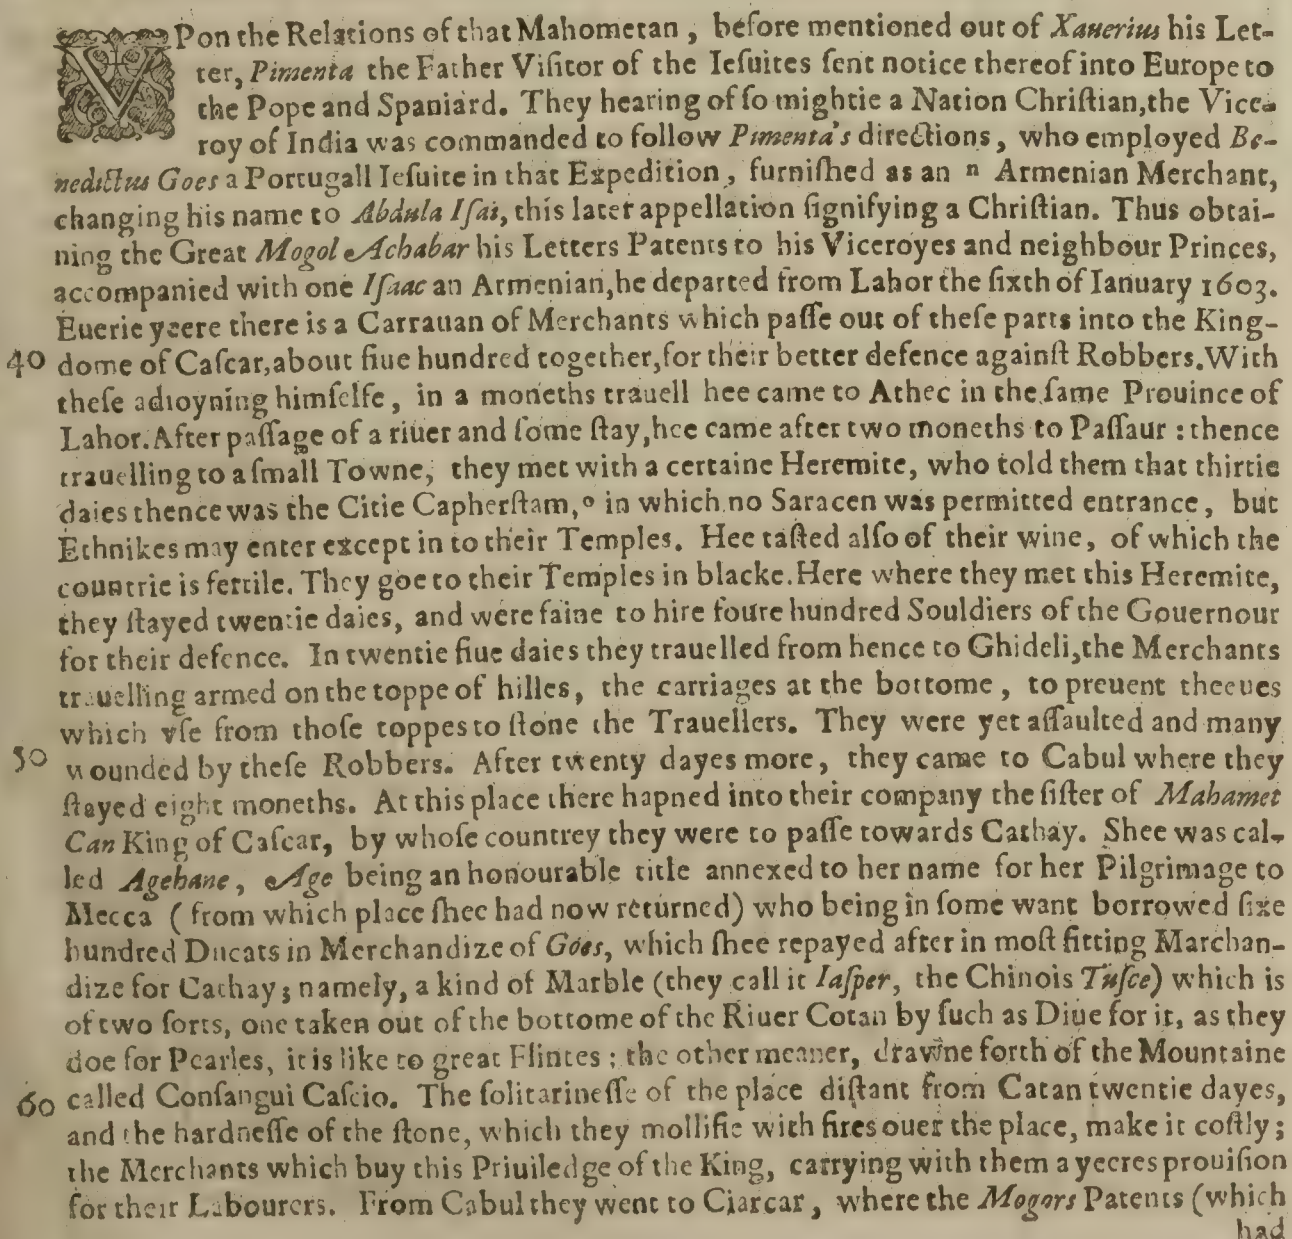 VPon the Relations of that Mahometan, before mentioned out of Xauerius his Let-
ter, Pimenta the Father Viſitor of the Ieſuites ſent notice thereof into Europe to
the Pope and Spaniard. They hearing of ſo mightie a Nation Chriſtian, the Vice-
roy of India was commanded to follow Pimenta's directions, who employed Be-
nedictus Goes a Portugall Ieſuite in that Expedition, furniſhed as an n Armenian Merchant,
changing his name to Abdula Iſai, this later appellation ſignifying a Chriſtian. Thus obtai-
ning the Great Mogol Achabar his Letters Patents to his Viceroyes and neighbour Princes,
accompanied with one Iſaac an Armenian, he departed from Lahor the ſixth of Ianuary 1603.
Euerie yeere there is a Carrauan of Merchants which paſſe out of theſe parts into the King-
40 dome of Caſcar, about fiue hundred together, for their better defence againſt Robbers. With
theſe adioyning himſelfe, in a moneths trauell hee came to Athec in the ſame Prouince of
Lahor. After paſſage of a riuer and ſome ſtay, hee came after two moneths to Paſſaur : thence
trauelling to a ſmall Towne, they met with a certaine Heremite, who told them that thirtie
daies thence was the Citie Capherſtam, o in which no Saracen was permitted entrance, but
Ethnikes may enter except in to their Temples. Hee taſted alſo of their wine, of which the
countrie is fertile. They goe to their Temples in blacke. Here where they met this Heremite,
they ſtayed twentie daies, and were faine to hire foure hundred Souldiers of the Gouernour
for their defence. In twentie fiue daies they trauelled from hence to Ghideli, the Merchants
trauelling armed on the toppe of hilles, the carriages at the bottome, to preuent theeues
which vſe from thoſe toppes to ſtone the Trauellers. They were yet aſſaulted and many
50 wounded by theſe Robbers. After twenty dayes more, they came to Cabul where they
ſtayed eight moneths. At this place there hapned into their company the ſiſter of Mahamet
Can King of Caſcar, by whoſe countrey they were to paſſe towards Cathay. Shee was cal-
led Agehane, Age being an honourable title annexed to her name for her Pilgrimage to
Mecca ( from which place ſhee had now returned) who being in ſome want borrowed ſixe
hundred Ducats in Merchandize of Goes, which ſhee repayed after in moſt fitting Marchan-
dize for Cathay; namely, a kind of Marble (they call it Iaſper, the Chinois Tuſce) which is
of two ſorts, one taken out of the bottome of the Riuer Cotan by ſuch as Diue for it, as they
doe for Pearles, it is like to great Flintes : the other meaner, drawne forth of the Mountaine
60 called Conſangui Caſcio. The ſolitarineſſe of the place diſtant from Catan twentie dayes,
and the hardneſſe of the ſtone, which they mollifie with fires ouer the place, make it coſtly;
the Merchants which buy this Priuiledge of the King, carrying with them a yeeres prouiſion
for their Labourers. From Cabul they went to Ciarcar, where the Mogors Patents (which
had